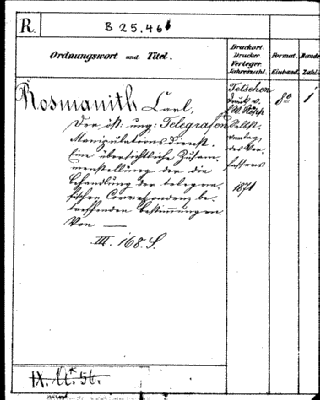 R.
B 25.46
Ordnungswort und Titel.
Druckort
Drucker
Verleger
Jahreszahl.
Format.
Einband.
Bände
Zahl.
Rosmanith Carl.
Der öst: ung: Telegrafen
Manipulations-Dienst.
Eine übersichtliche Zusam-
menstellung der die
Behandlung der telegra-
fischen Correspondenz be-
treffenden Bestimmungen
Von —
III. 168. S.
Teschen
Druck v.
Selbst-
verlag
des Ver-
fassers
1871
8°
1
IX.